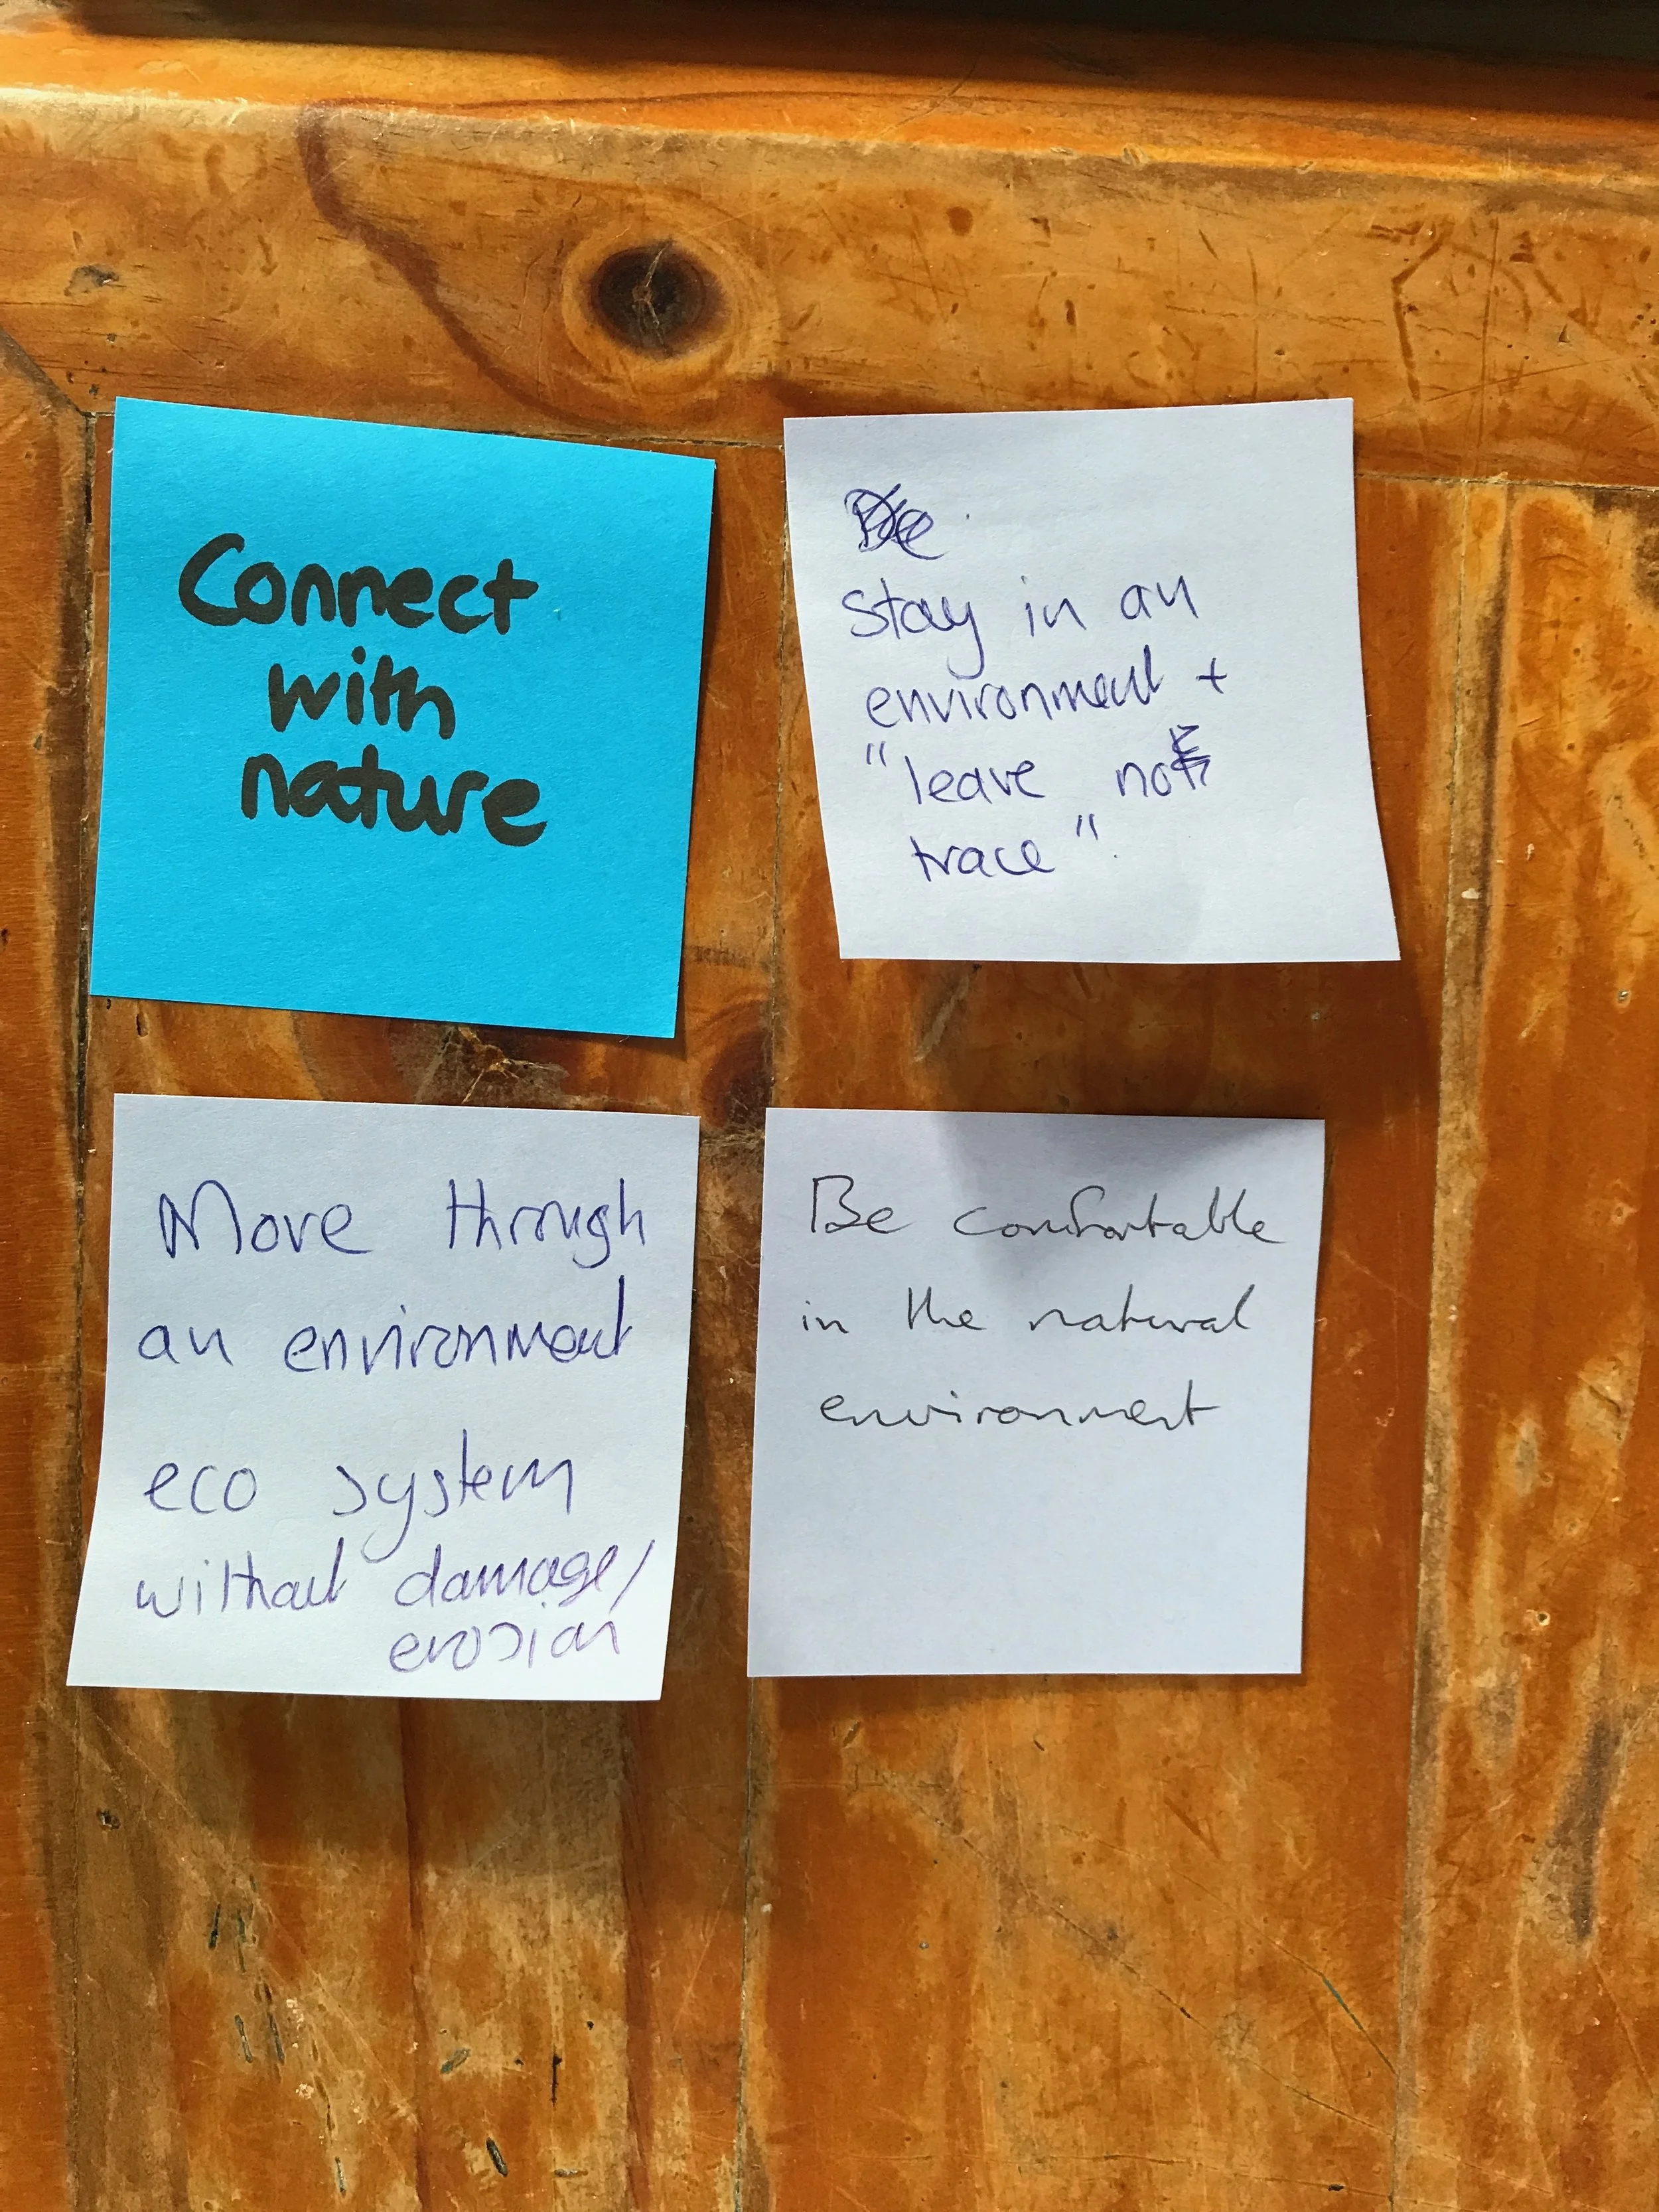 Connect
with
nature
Stay in an
environment +
"leave no
trace".
Move through
an environment
eco system
without damage/
erosion
Be comfortable
in the natural
environment